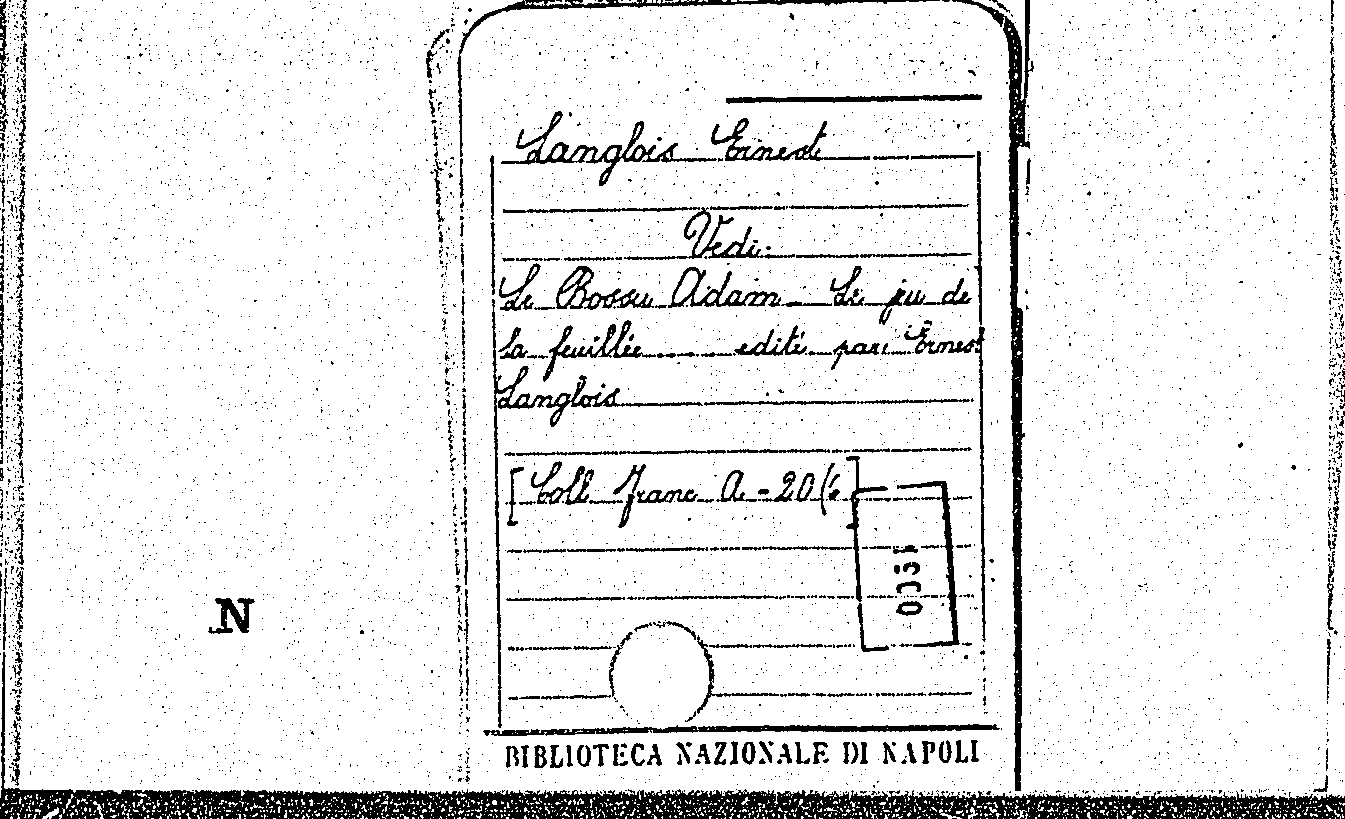 Langlois Ernest
Vedi:
Le Bossu Adam - Le jeu de
la feuillée ..... edité par Ernest
Langlois
[Coll. Franc. A - 20(6]
N
BIBLIOTECA NAZIONALE DI NAPOLI